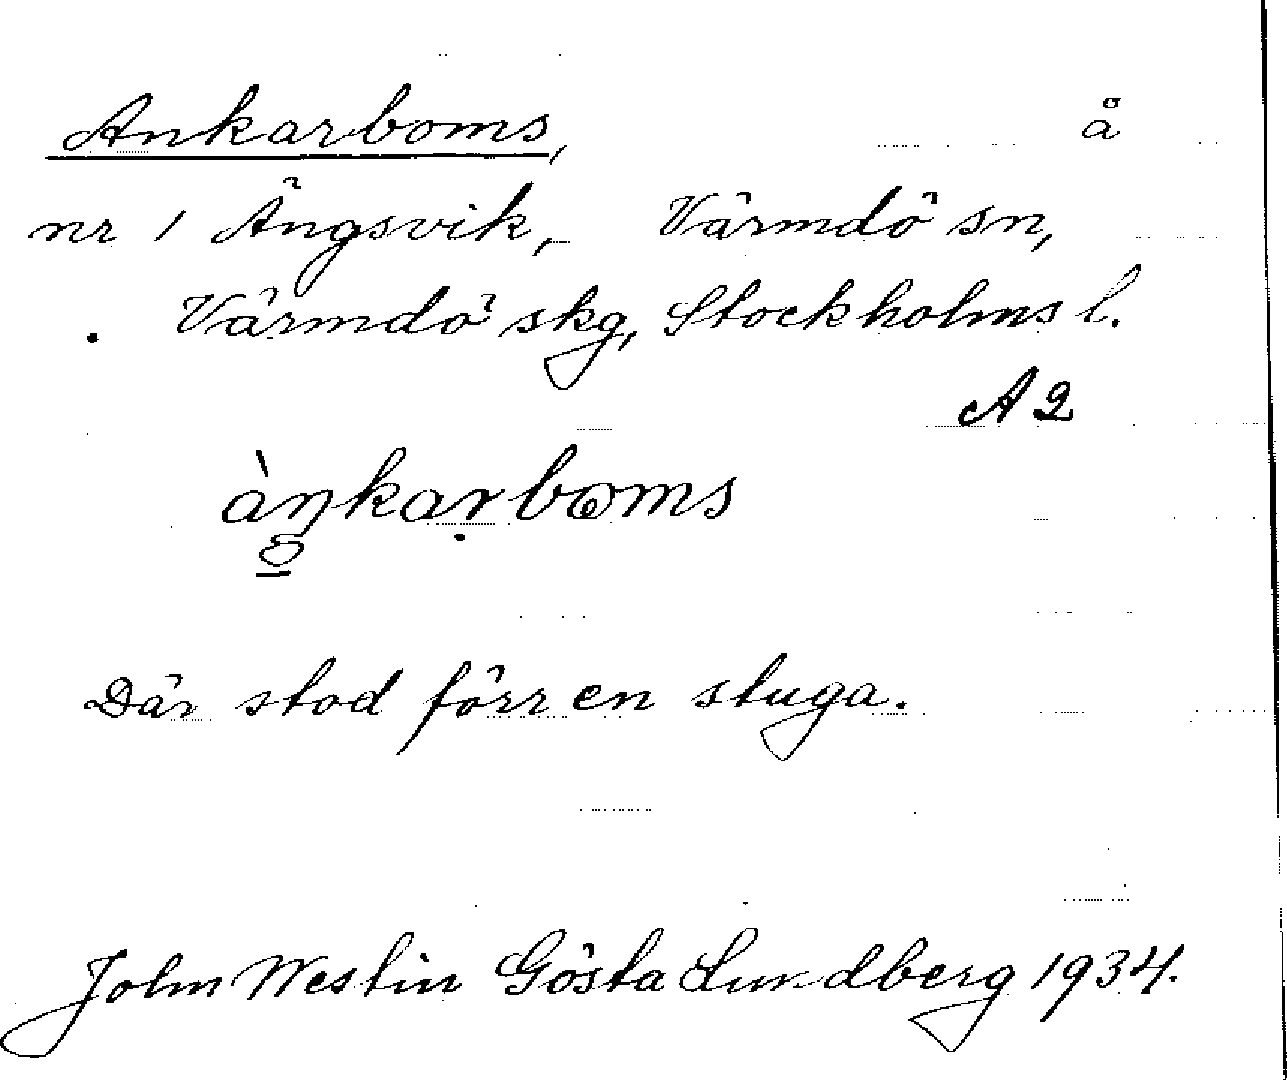 Ankarboms, å
nr 1 Ängsvik, Värmdö sn,
Värmdö skg, Stockholms l.
A2
àŋkaṛboms
Där stod förr en stuga.
John Westin Gösta Lundberg 1934.